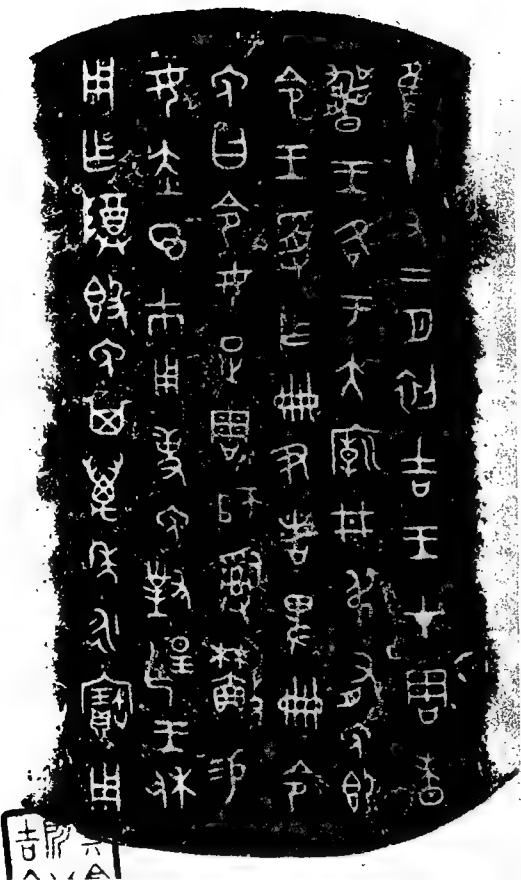 隹十又二月初吉王才周昧
爽王各于大廟井弔有免即
令王受乍冊尹者卑冊令
免曰令女疋周師𤔲廩易
女赤巿用事免對揚王休
用乍尊簋免其萬年永寶用